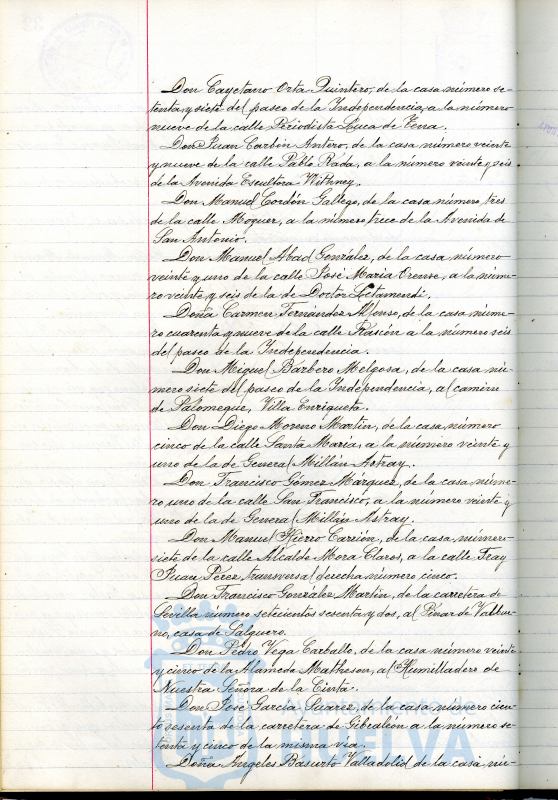 Don Cayetano Orta Quintero, de la casa número se-
tenta y siete del paseo de la Independencia, a la número
nueve de la calle Periodista Luca de Tena.
Don Juan Carbón Antero, de la casa número veinte
y nueve de la calle Pablo Rada, a la número veinte y seis
de la Avenida Escultora Withney.
Don Manuel Cordón Gallego, de la casa número tres
de la calle Moguer, a la número trece de la Avenida de
San Antonio.
Don Manuel Abad González, de la casa número
veinte y uno de la calle José María Orense, a la núme-
ro veinte y seis de la de Doctor Letamendi.
Doña Carmen Fernández Alonso, de la casa núme-
ro cuarenta y nueve de la calle Rascón a la número seis
del paseo de la Independencia.
Don Miguel Barbero Melgosa, de la casa nú-
mero siete del paseo de la Independencia, al camino
de Palomeque, Villa Enriqueta.
Don Diego Moreno Martín, de la casa número
cinco de la calle Santa María, a la número veinte y
uno de la de General Millán Astray.
Don Francisco Gómez Márquez, de la casa núme-
ro uno de la calle San Francisco, a la número veinte y
uno de la de General Millán Astray.
Don Manuel Hierro Carrión, de la casa número
siete de la calle Alcalde Mora Claros, a la calle Fray
Juan Pérez, transversal derecha número cinco.
Don Francisco González Martín, de la carretera de
Sevilla número setecientos sesenta y dos, al Pinar de Valbue-
no, casa de Salguero.
Don Pedro Vega Carballo, de la casa número veinte
y cinco de la Alameda Matheson, al Humilladero de
Nuestra Señora de la Cinta.
Don José García Suarez, de la casa número cien-
to sesenta de la carretera de Gibraleón a la número se-
tenta y cinco de la misma vía.
HUELVA
Doña Angeles Basurto Valladolid, de la casa nú-